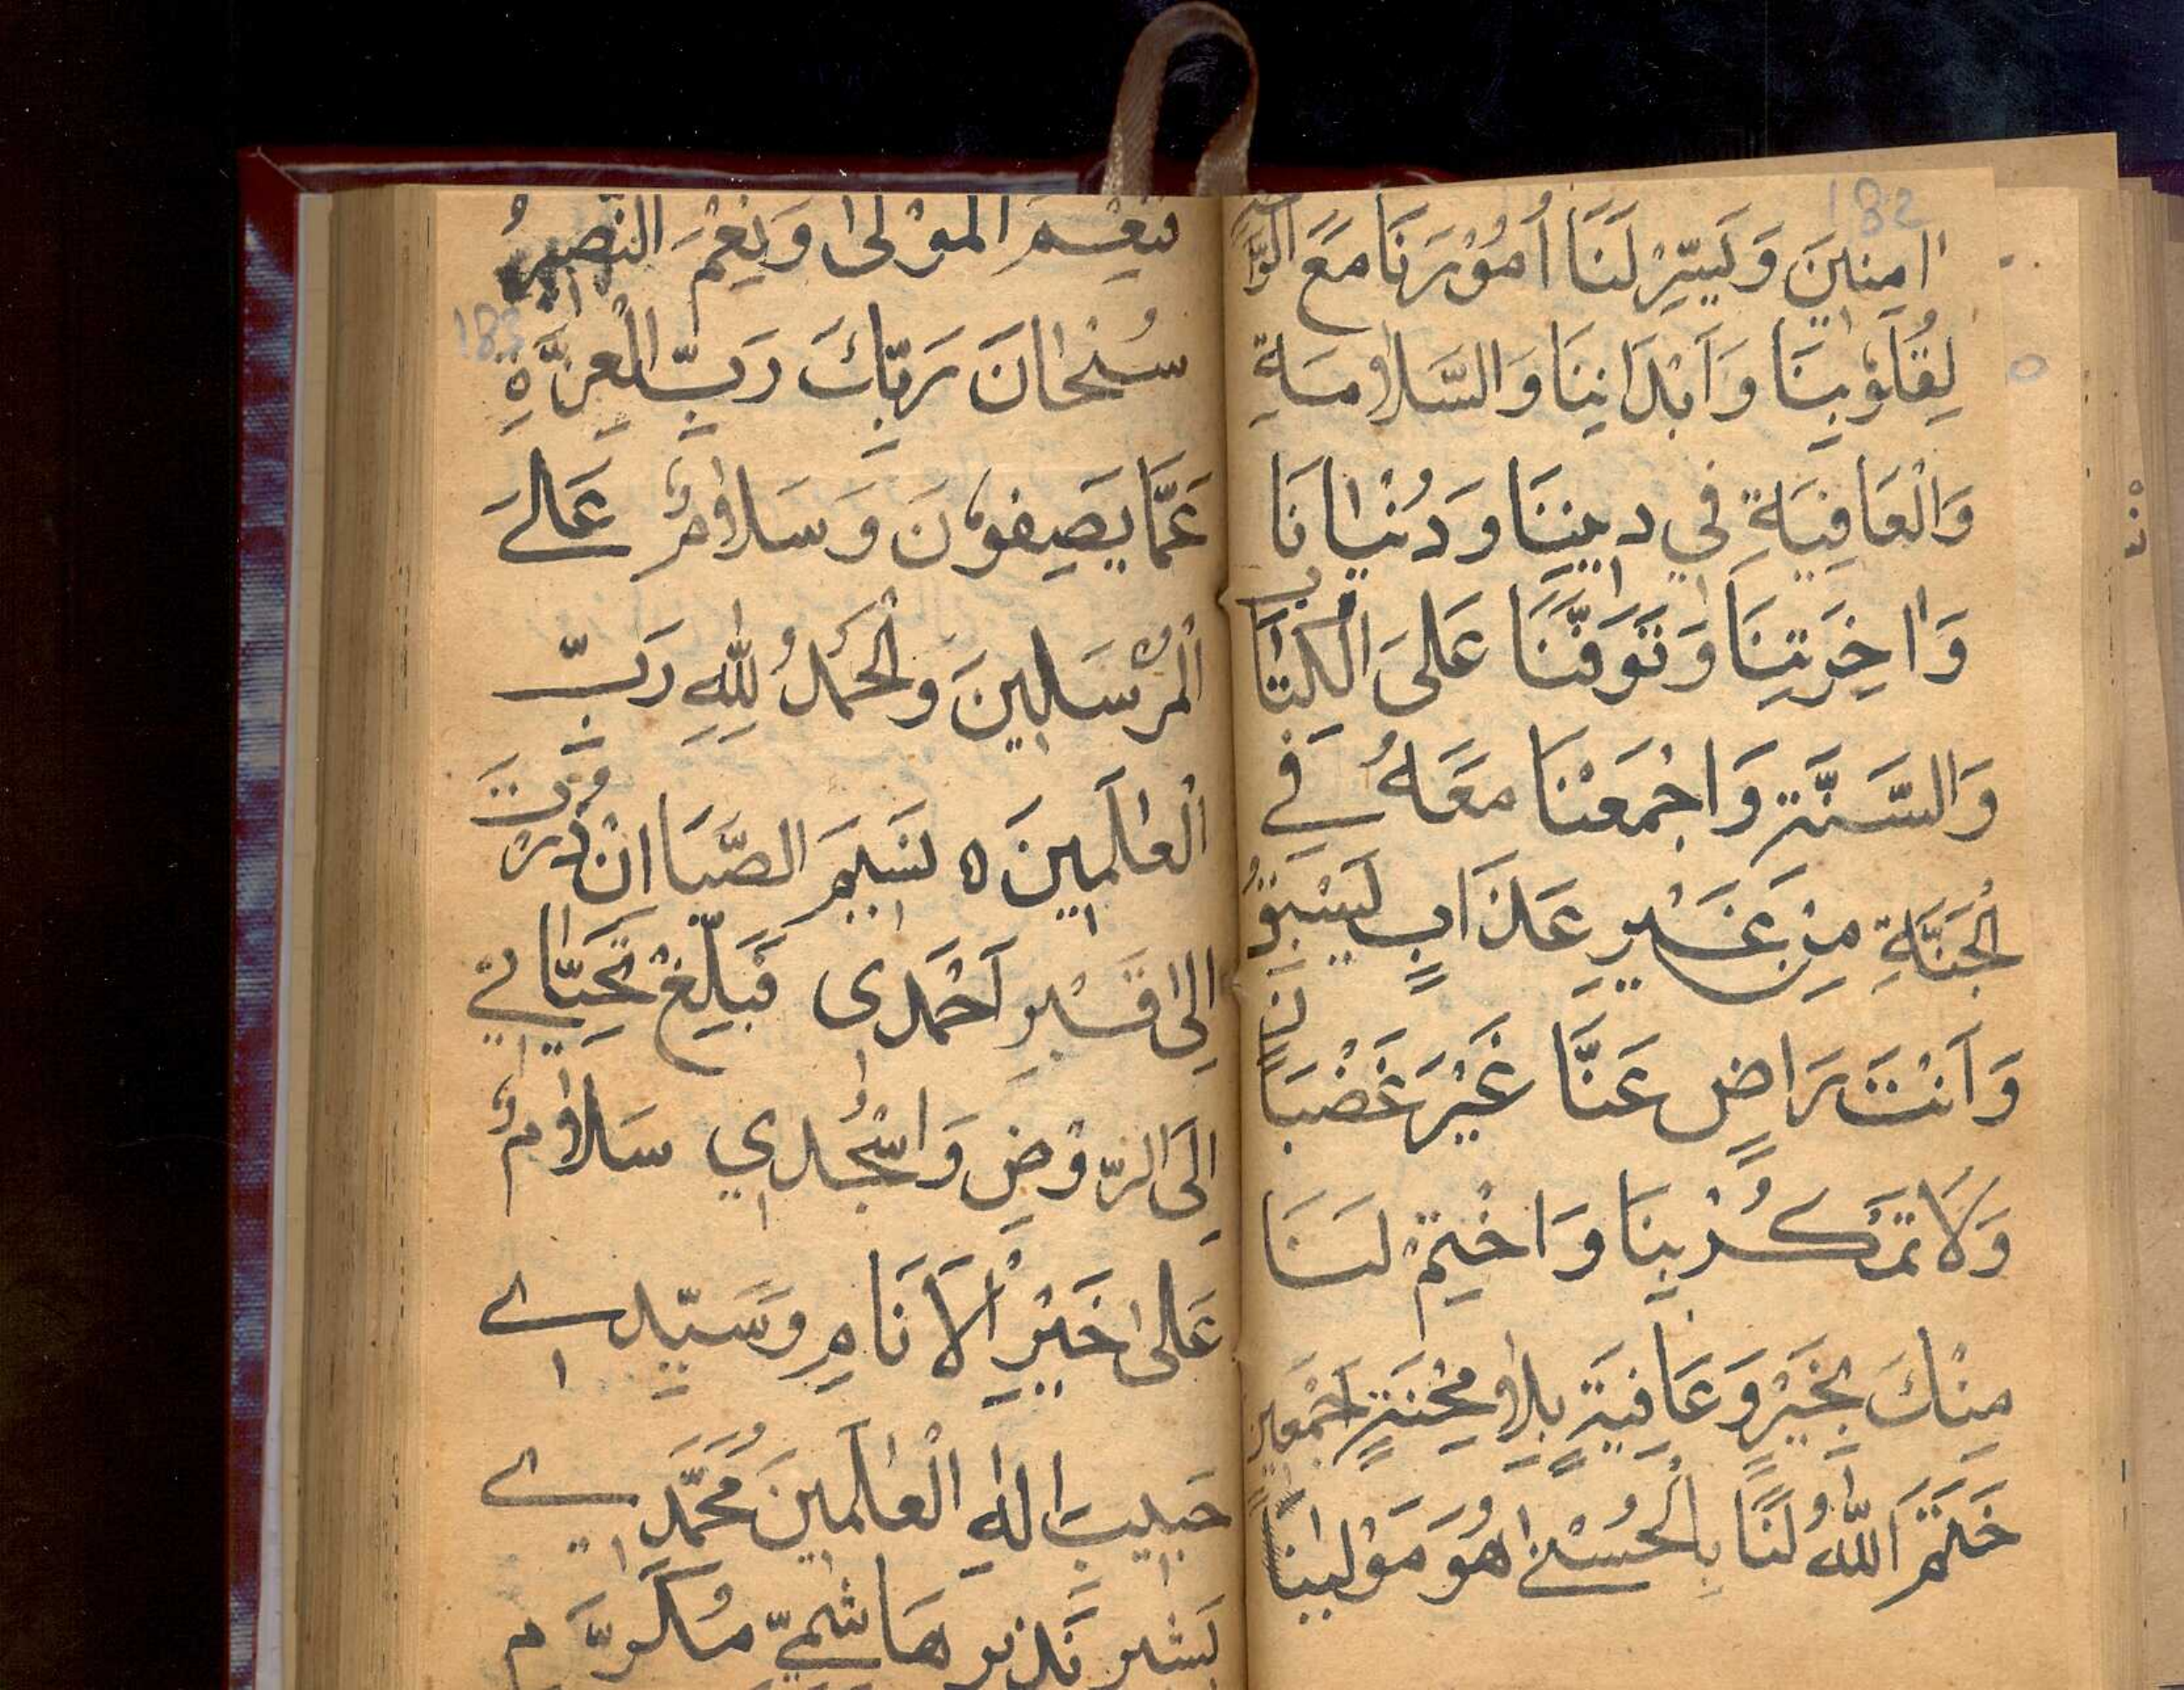 182
اٰمِنِينَ وَيَسِّرْ لَنَا اُمُوْرَنَا مَعَ الرَّاحَةِ
لِقُلُوْبِنَا وَاَبْدَانِنَا وَالسَّلَامَةِ
وَالْعَافِيَةِ فِي دِينِنَا وَدُنْيَانَا
وَاٰخِرَتِنَا وَتَوَفَّنَا عَلَى الْكِتَابِ
وَالسُّنَّةِ وَاجْمَعْنَا مَعَهُ فِي
الْجَنَّةِ مِنْ غَيْرِ عَذَابٍ يَسْبِقُ
وَاَنْتَ رَاضٍ عَنَّا غَيْرَ غَضْبَانَ
وَلَا تَمْكُرْ بِنَا وَاخْتِمْ لَنَا
مِنْكَ بِخَيْرٍ وَعَافِيَةٍ بِلَا مِحْنَةٍ اَجْمَعِينَ
خَتَمَ اللّٰهُ لَنَا بِالْحُسْنٰى هُوَ مَوْلٰينَا
نِعْمَ الْمَوْلٰى وَنِعْمَ النَّصِيرُ
183
سُبْحَانَ رَبِّكَ رَبِّ الْعِزَّةِ
عَمَّا يَصِفُوْنَ وَسَلَامٌ عَلَى
الْمُرْسَلِينَ وَالْحَمْدُ لِلّٰهِ رَبِّ
الْعَالَمِينَ ه نَسِيمَ الصَّبَا اِنْ زُرْتَ
اِلٰى قَبْرِ اَحْمَدِى فَبَلِّغْ تَحِيَّاتِي
اِلَى الرَّوْضِ وَاسْجُدِي سَلَامٌ
عَلٰى خَيْرِ الْاَنَامِ وَسَيِّدِي
حَبِيبِ اِلٰهِ الْعَالَمِينَ مُحَمَّدِي
بَشِيرٍ نَذِيرٍ هَاشِمِيٍّ مُكَرَّمٍ